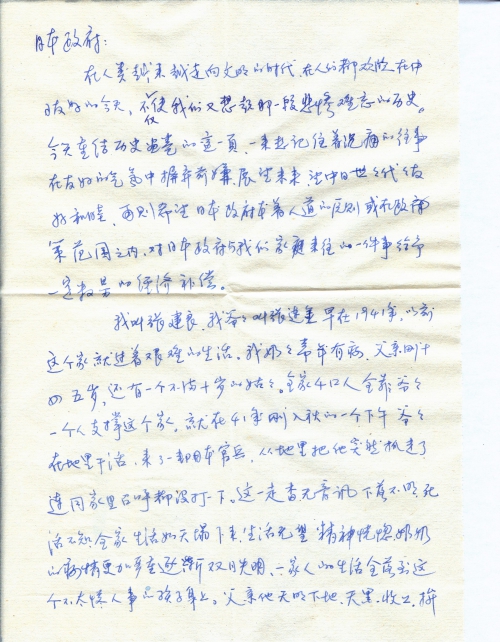 日本政府:
在人类越来越走向文明的时代,在人们都欢欣在中
友好的今天,不仅使我们又想起那一段悲惨难忘的历史。
今天重结历史遗
的这一页,一来是记住着沉痛的往事
在友好的气氛中摒弃前嫌,展望未来,望中日世世代代友
好和睦,再则希望日本政府本着人道的原则或在政府
范围之内,对日本政府与我们家庭来往的一件事给予
一定数量的经济补偿。
我叫张建良,我爷爷叫张进 早在1941年,以前
这个家就过着艰难的生活。我奶奶常年有病,父亲刚十
四五岁,还有一个不满十岁的姑姑。全家4口人全靠爷爷
一个人支撑这个家。就在41年刚入秋的一个下午 爷爷
在地里干活,来了一部日本官兵,从地里把他突然抓走了
连同家里召呼都没打一下。这一走杳无音讯 下落不明死
活不知,全家生活如天塌下来,生活无望 精神恍惚 奶奶
的病情更加严重逐渐双目失明,一家人的生活全落到这
个不太懂人事的孩子身上。父亲他天明下地,天黑收工,拼